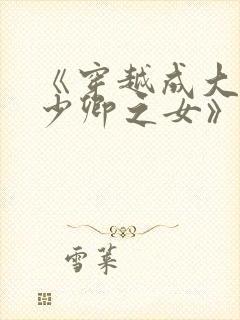 《穿越成大
少卿之女》
雪菜